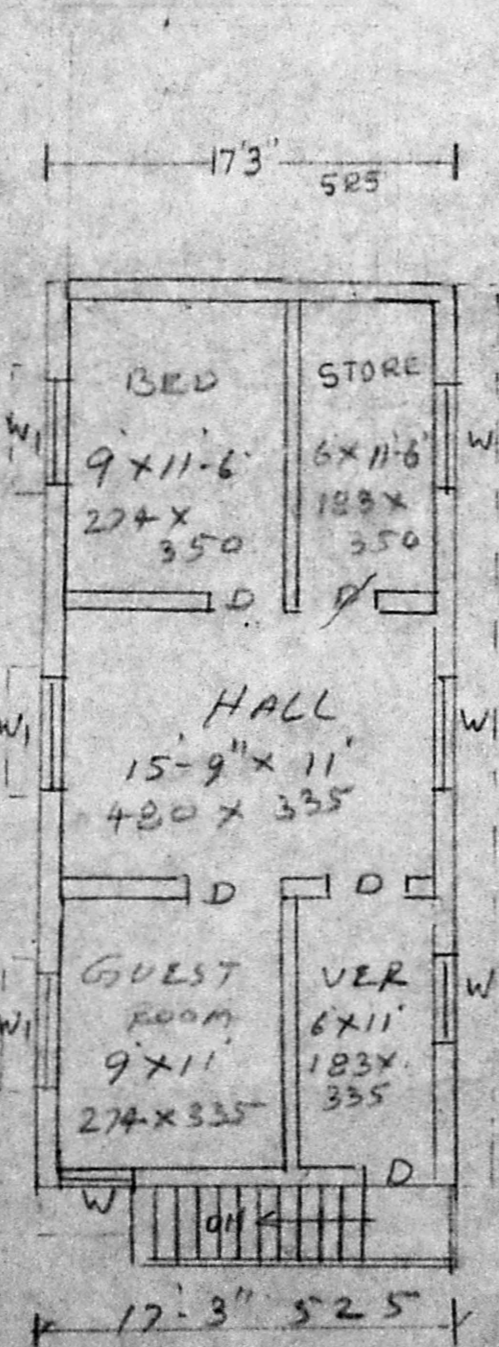 17'3"
525
BED
9'X11'-6"
274X
350
STORE
6'X11'-6"
183X
350
W1
W
D
D
HALL
15'-9"X 11'
480 X 335
W1
W1
D
D
GUEST
ROOM
9'X11'
274X335
VER
6'X11'
183X
335
W1
W
D
W
17'-3" 525